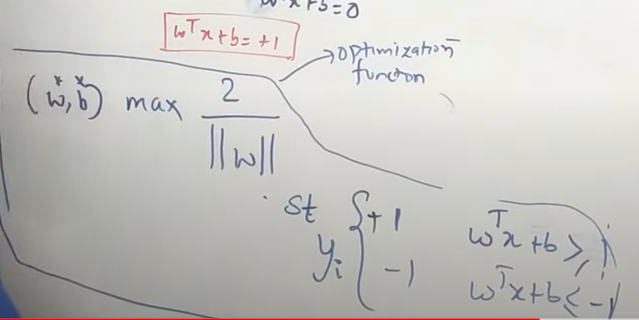 wᵀx+b=0
wᵀx+b=+1
optimization
function
(w*, b*) max 2/||w||
st yᵢ { +1
-1
wᵀx+b ≥ 1
wᵀx+b ≤ -1